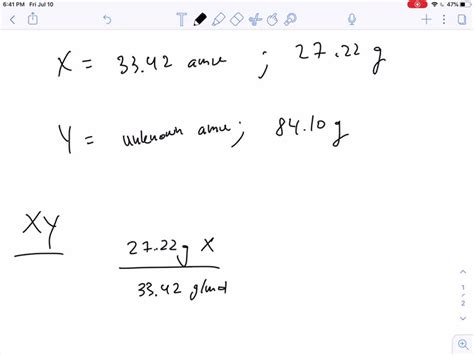 6:41 PM Fri Jul 10
47%
X = 33.42 amu ; 27.22 g
Y = unknown amu; 84.10 g
XY
27.22 g X
33.42 g/mol
1
2